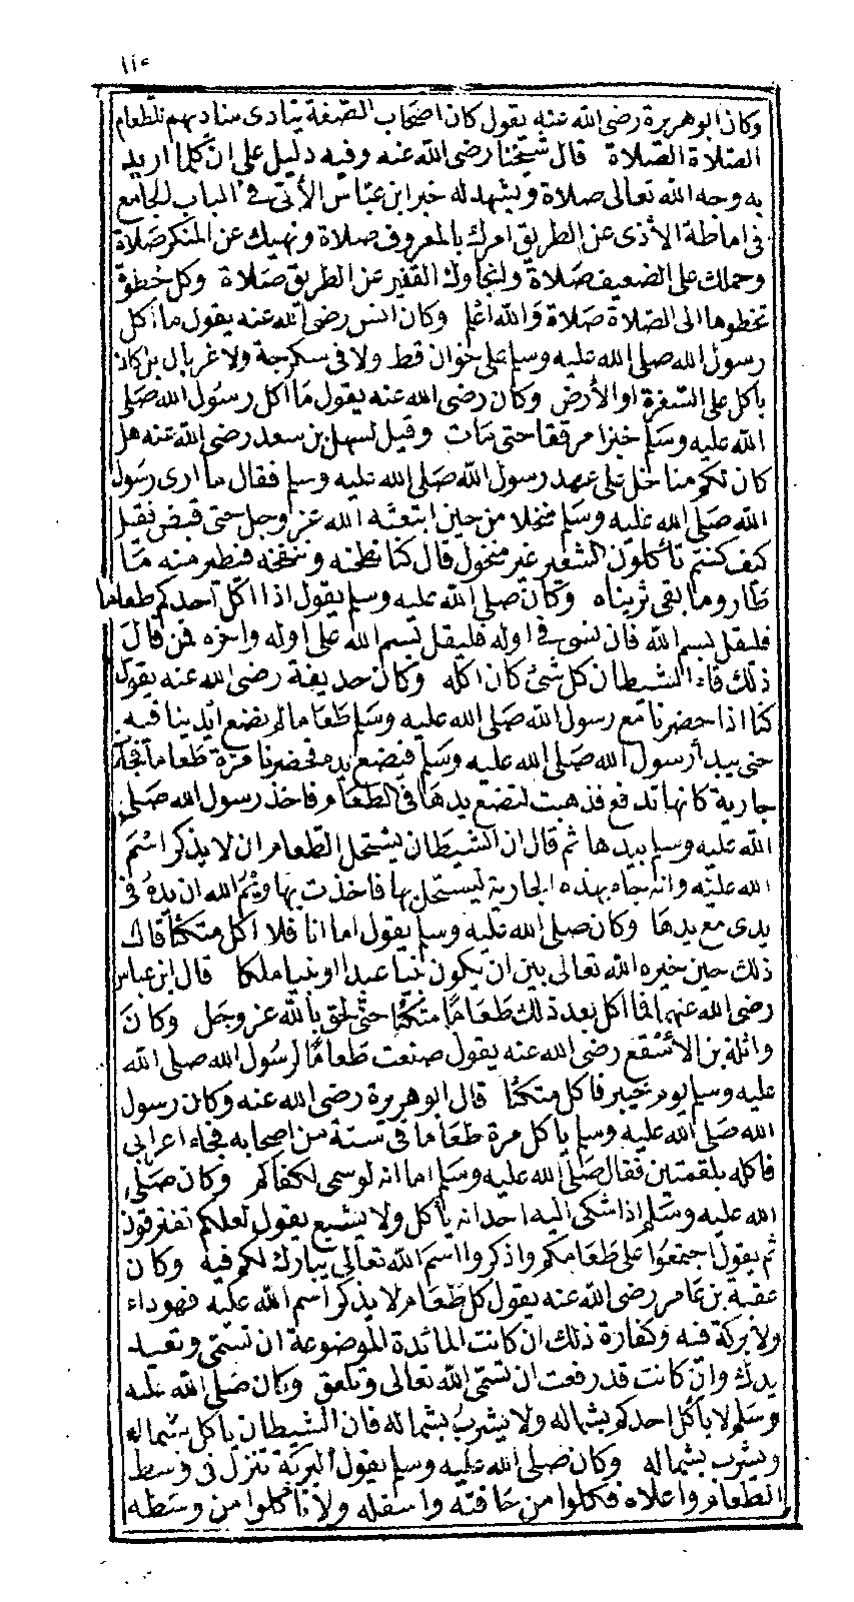 ١١٤
وكان ابو هريرة رضى الله عنه يقول كان اصحاب الصفة ينادى مناديهم للطعام
الصلاة الصلاة قال شيخنا رضى الله عنه وفيه دليل على ان كلما اريد
به وجه الله تعالى صلاة ويشهد له خبر ابن عباس الأتى فى الباب الجامع
فى اماطة الأذى عن الطريق امرك بالمعروف صلاة ونهيك عن المنكر صلاة
وحملك على الضعيف صلاة وانحاؤك القذر عن الطريق صلاة وكل خطوة
تخطوها الى الصلاة صلاة والله اعلم وكان انس رضى الله عنه يقول ما اكل
رسول الله صلى الله عليه وسلم على خوان قط ولا فى سكرجة ولا غربال بل كان
يأكل على السفرة او الأرض وكان رضى الله عنه يقول ما اكل رسول الله صلى
الله عليه وسلم خبزا مرققا حتى مات وقيل لسهل بن سعد رضى الله عنه هل
كان لكم مناخل على عهد رسول الله صلى الله عليه وسلم فقال ما ارى رسول
الله صلى الله عليه وسلم منخلا من حين ابتعثه الله عز وجل حتى قبض فقيل
كيف كنتم تأكلون الشعير غير منخول قال كنا نطحنه وننفخه فيطير منه ما
طار وما بقى ثريناه وكان صلى الله عليه وسلم يقول اذا اكل احدكم طعاما
فليقل بسم الله فان نسى فى اوله فليقل بسم الله على اوله واخره فمن قال
ذلك قاء الشيطان كل شئ كان اكله وكان حذيفة رضى الله عنه يقول
كنا اذا حضرنا مع رسول الله صلى الله عليه وسلم طعاما لم نضع ايدينا فيه
حتى يبدأ رسول الله صلى الله عليه وسلم فيضع يده فحضرنا مرة طعاما فجاءت
جارية كانها تدفع فذهبت لتضع يدها فى الطعام فاخذ رسول الله صلى
الله عليه وسلم بيدها ثم قال ان الشيطان يستحل الطعام ان لا يذكر اسم
الله عليه وانه جاء بهذه الجارية ليستحل بها فاخذت بها ويم الله ان يده فى
يدى مع يدها وكان صلى الله عليه وسلم يقول اما انا فلا اكل متكئا قال
ذلك حين خيره الله تعالى بين ان يكون نبيا عبدا او نبيا ملكا قال ابن عباس
رضى الله عنهما فما اكل بعد ذلك طعاما متكئا حتى لحق بالله عز وجل وكان
واثلة بن الأسقع رضى الله عنه يقول صنعت طعاما لرسول الله صلى الله
عليه وسلم يوم خيبر فاكل متكئا قال ابو هريرة رضى الله عنه وكان رسول
الله صلى الله عليه وسلم يأكل مرة طعاما فى ستة من اصحابه فجاء اعرابى
فاكله بلقمتين فقال صلى الله عليه وسلم اما انه لو سمى لكفاكم وكان صلى
الله عليه وسلم اذا شكى اليه احد انه يأكل ولا يشبع يقول لعلكم تفترقون
ثم يقول اجتمعوا على طعامكم واذكروا اسم الله تعالى يبارك لكم فيه وكان
عقبة بن عامر رضى الله عنه يقول كل طعام لا يذكر اسم الله عليه فهو داء
ولا بركة فيه وكفارة ذلك ان كانت المائدة الموضوعة ان تسمى وتعيد
يدك وان كانت قد رفعت ان تسمى الله تعالى وتلعق وكان صلى الله عليه
وسلم لا يأكل احدكم بشماله ولا يشرب بشماله فان الشيطان يأكل بشماله
ويشرب بشماله وكان صلى الله عليه وسلم يقول البركة تنزل فى وسط
الطعام واعلاه فكلوا من حافته واسفله ولا تأكلوا من وسطه